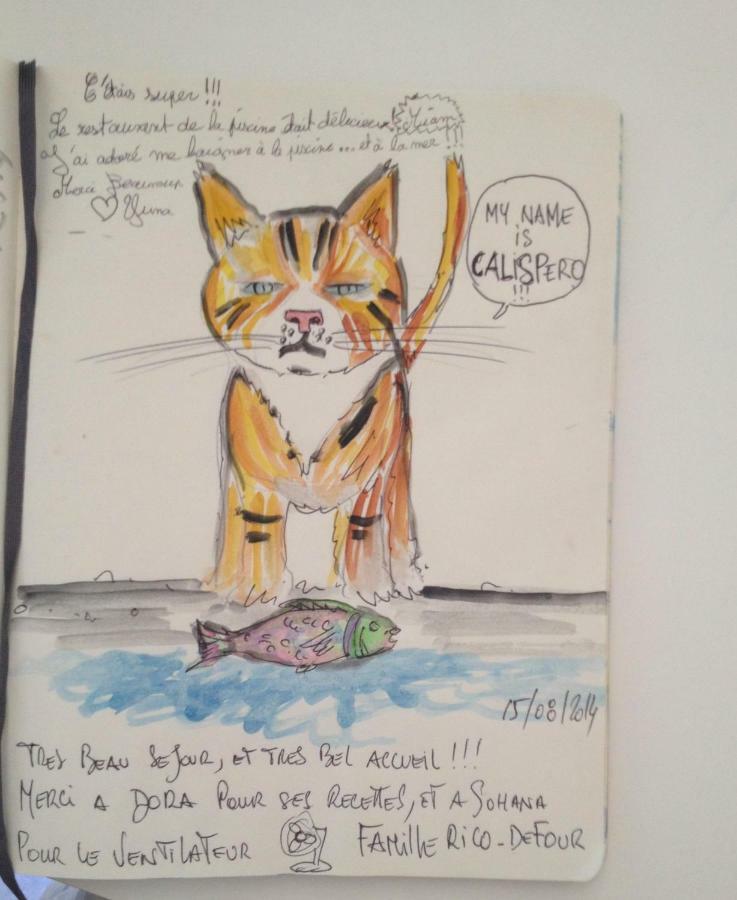 C'étais super !!!
Le restaurant de la piscine était délicieux Miam
J'ai adoré me baigner à la piscine ... et à la mer !!!
Merci Beaucoup
♡ Yuna
MY NAME
iS
CALISPERO
!!!
15/08/2014
TRES BEAU SEJOUR, ET TRES BEL ACCUEIL !!!
MERCI A DORA POUR SES RECETTES, ET A SOHANA
POUR LE VENTILATEUR FAMILLE RICO-DEFOUR